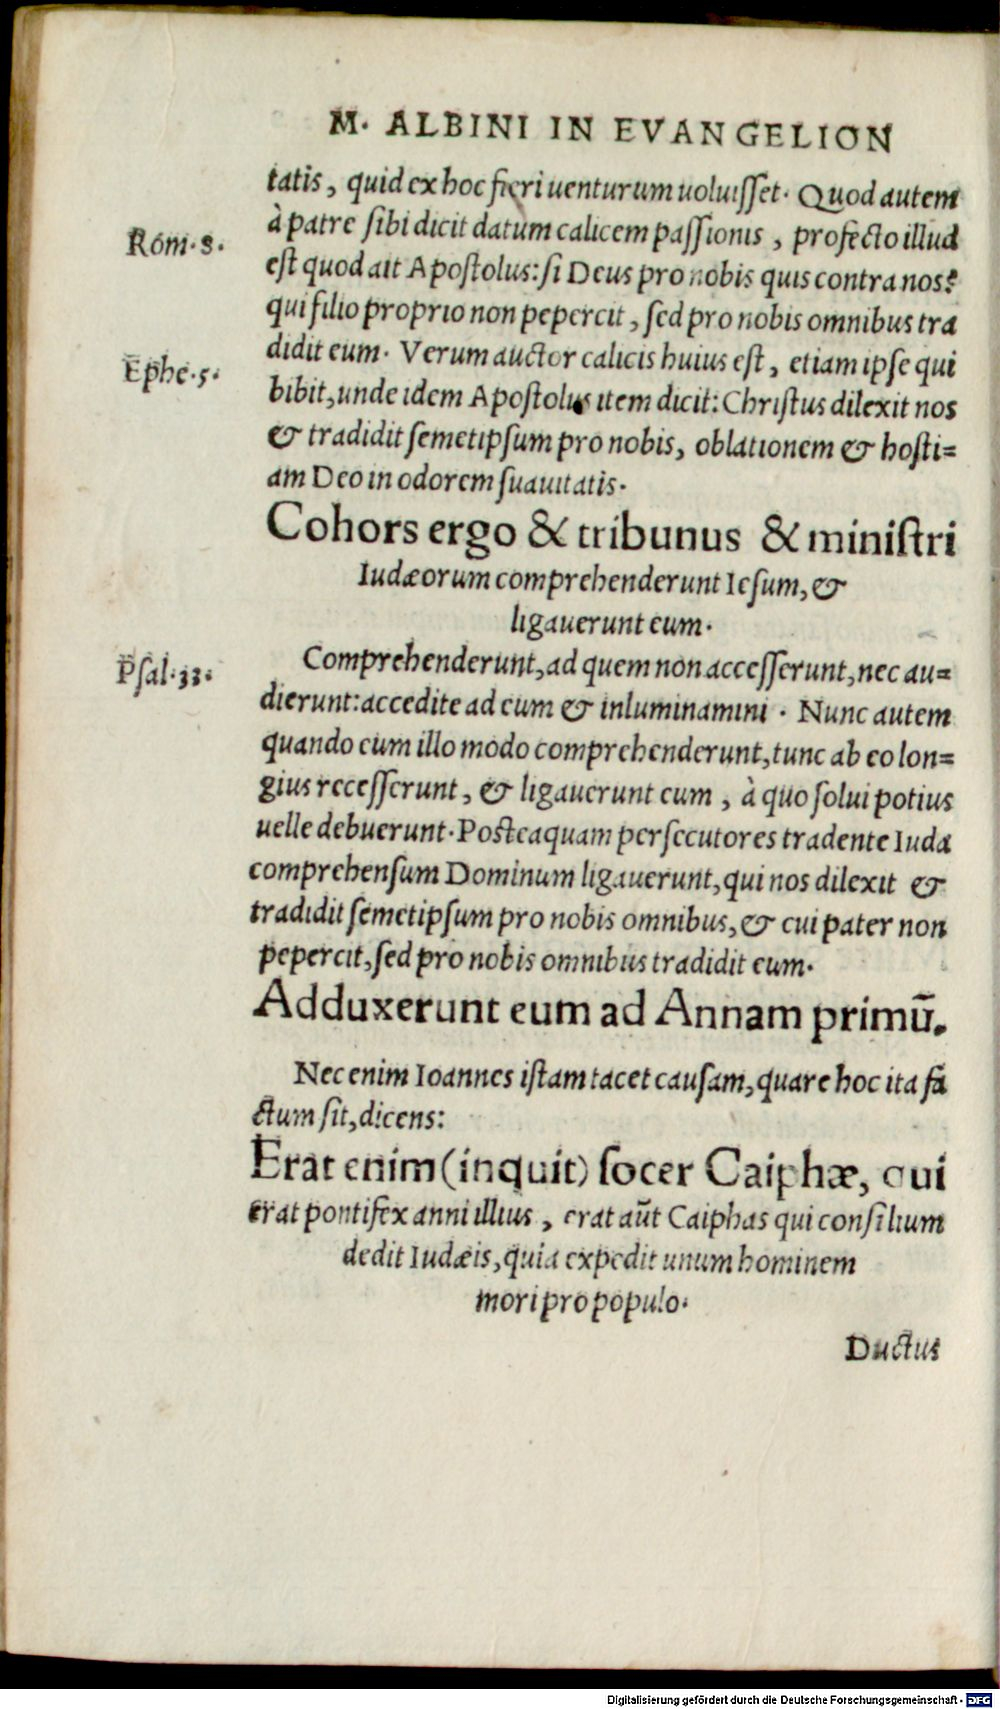 M. ALBINI IN EVANGELION
tatis, quid ex hoc fieri uenturum uoluisset. Quod autem
Rom. 8.
à patre sibi dicit datum calicem passionis, profecto illud
est quod ait Apostolus: si Deus pro nobis quis contra nos?
qui filio proprio non pepercit, sed pro nobis omnibus tra
didit eum. Verum auctor calicis huius est, etiam ipse qui
Ephe. 5.
bibit, unde idem Apostolus item dicit: Christus dilexit nos
& tradidit semetipsum pro nobis, oblationem & hosti=
am Deo in odorem suauitatis.
Cohors ergo & tribunus & ministri
Iudæorum comprehenderunt Iesum, &
ligauerunt eum.
Psal. 33.
Comprehenderunt, ad quem non accesserunt, nec au=
dierunt: accedite ad eum & inluminamini. Nunc autem
quando eum illo modo comprehenderunt, tunc ab eo lon=
gius recesserunt, & ligauerunt eum, à quo solui potius
uelle debuerunt. Posteaquam persecutores tradente Iuda
comprehensum Dominum ligauerunt, qui nos dilexit &
tradidit semetipsum pro nobis omnibus, & cui pater non
pepercit, sed pro nobis omnibus tradidit eum.
Adduxerunt eum ad Annam primū.
Nec enim Ioannes istam tacet causam, quare hoc ita fa
ctum sit, dicens:
Erat enim (inquit) socer Caiphæ, qui
erat pontifex anni illius, erat aūt Caiphas qui consilium
dedit Iudæis, quia expedit unum hominem
mori pro populo.
Ductus
Digitalisierung gefördert durch die Deutsche Forschungsgemeinschaft - DFG